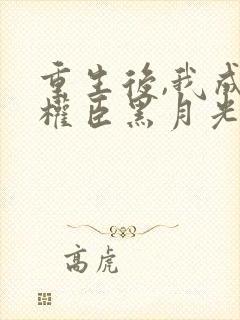 重生後,我成
權臣黑月光
高虎